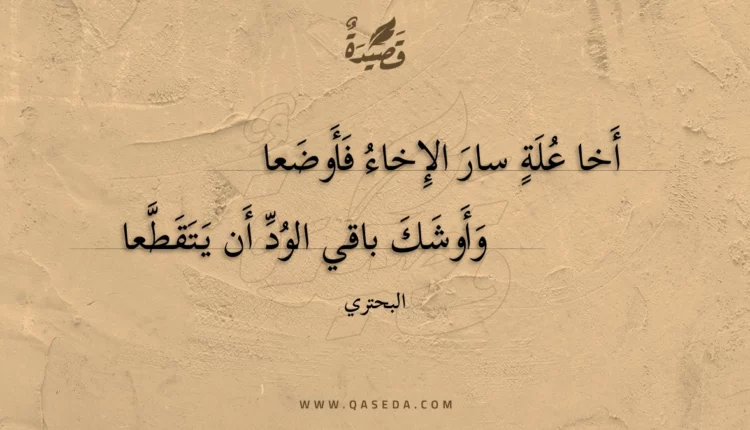 قَصِيدَةٌ
أَخا عُلَةٍ سارَ الإِخاءُ فَأَوضَعا
وَأَوشَكَ باقي الوُدِّ أَن يَتَقَطَّعا
البحتري
WWW.QASEDA.COM